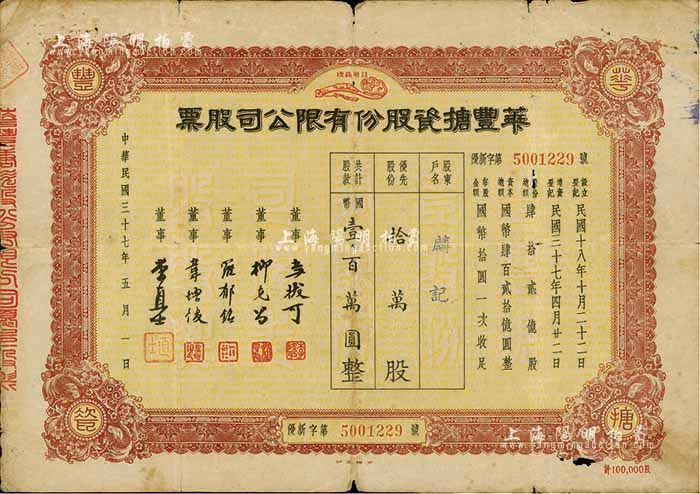 註冊商標
華豐搪瓷股份有限公司股票
優新字第 5001229 號
設立登記 民國十八年十月二十二日
增資登記 民國三十七年四月廿二日
股份總額 肆拾貳億股
資本總額 國幣肆百貳拾億圓整
每股金額 國幣拾圓一次收足
股東戶名 麟記
優先股份 拾萬股
共計股款 國幣壹百萬圓整
董事
董事
董事
董事
董事
中華民國三十七年五月一日
優新字第 5001229 號
計100,000股
華
豐
搪
瓷
上海陽明拍賣
上海陽明拍賣
上海陽明拍賣
上海陽明拍賣